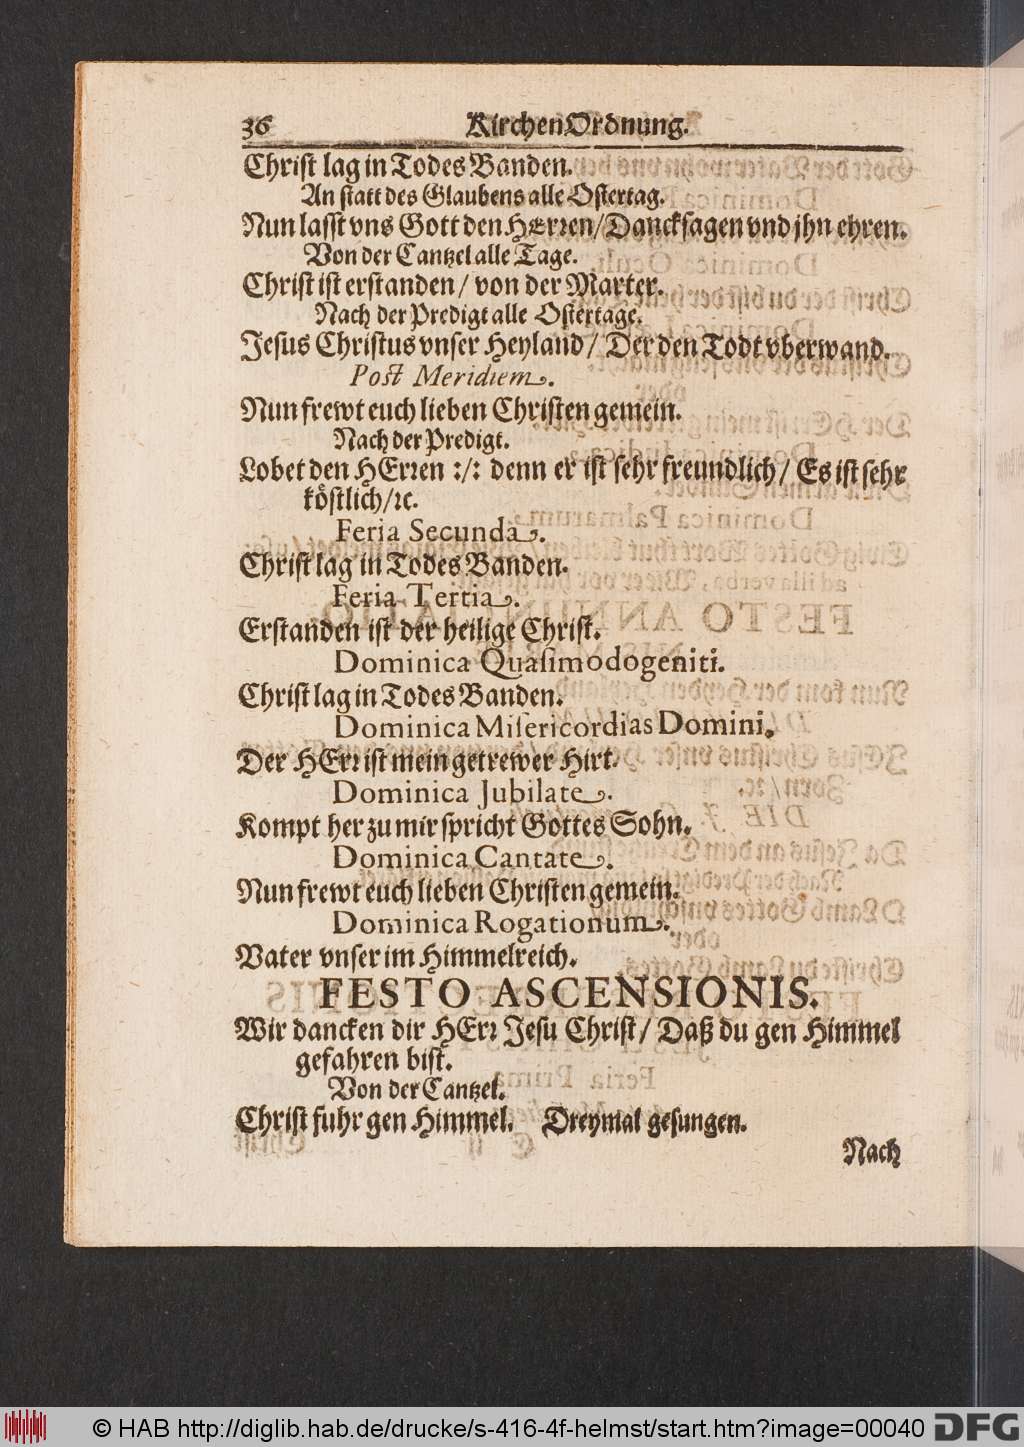 36 KirchenOrdnung.
Christ lag in Todes Banden.
An statt des Glaubens alle Ostertag.
Nun lasst vns Gott den HErren/Dancksagen vnd jhn ehren.
Von der Cantzel alle Tage.
Christ ist erstanden/ von der Marter.
Nach der Predigt alle Ostertage.
Jesus Christus vnser Heyland/ Der den Todt vberwand.
Post Meridiem.
Nun frewt euch lieben Christen gemein.
Nach der Predigt.
Lobet den HErren :/: denn er ist sehr freundlich/ Es ist sehr
köstlich/ꝛc.
Feria Secunda.
Christ lag in Todes Banden.
Feria Tertia.
Erstanden ist der heilige Christ.
Dominica Quasimodogeniti.
Christ lag in Todes Banden.
Dominica Misericordias Domini.
Der HErr ist mein getrewer Hirt.
Dominica Jubilate.
Kompt her zu mir spricht Gottes Sohn.
Dominica Cantate.
Nun frewt euch lieben Christen gemein.
Dominica Rogationum.
Vater vnser im Himmelreich.
FESTO ASCENSIONIS.
Wir dancken dir HErr Jesu Christ/ Daß du gen Himmel
gefahren bist.
Von der Cantzel.
Christ fuhr gen Himmel. Dreymal gesungen.
Nach
© HAB http://diglib.hab.de/drucke/s-416-4f-helmst/start.htm?image=00040 DFG